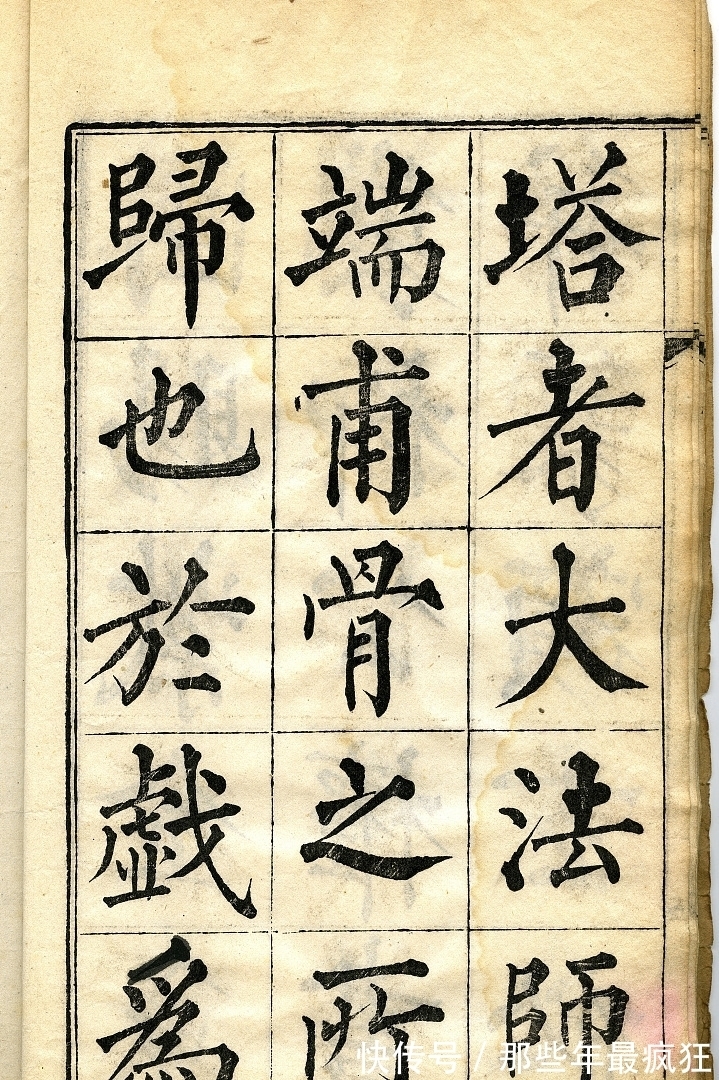 塔者大法師
端甫骨之所
歸也於戲為
快传号 / 那些年最疯狂